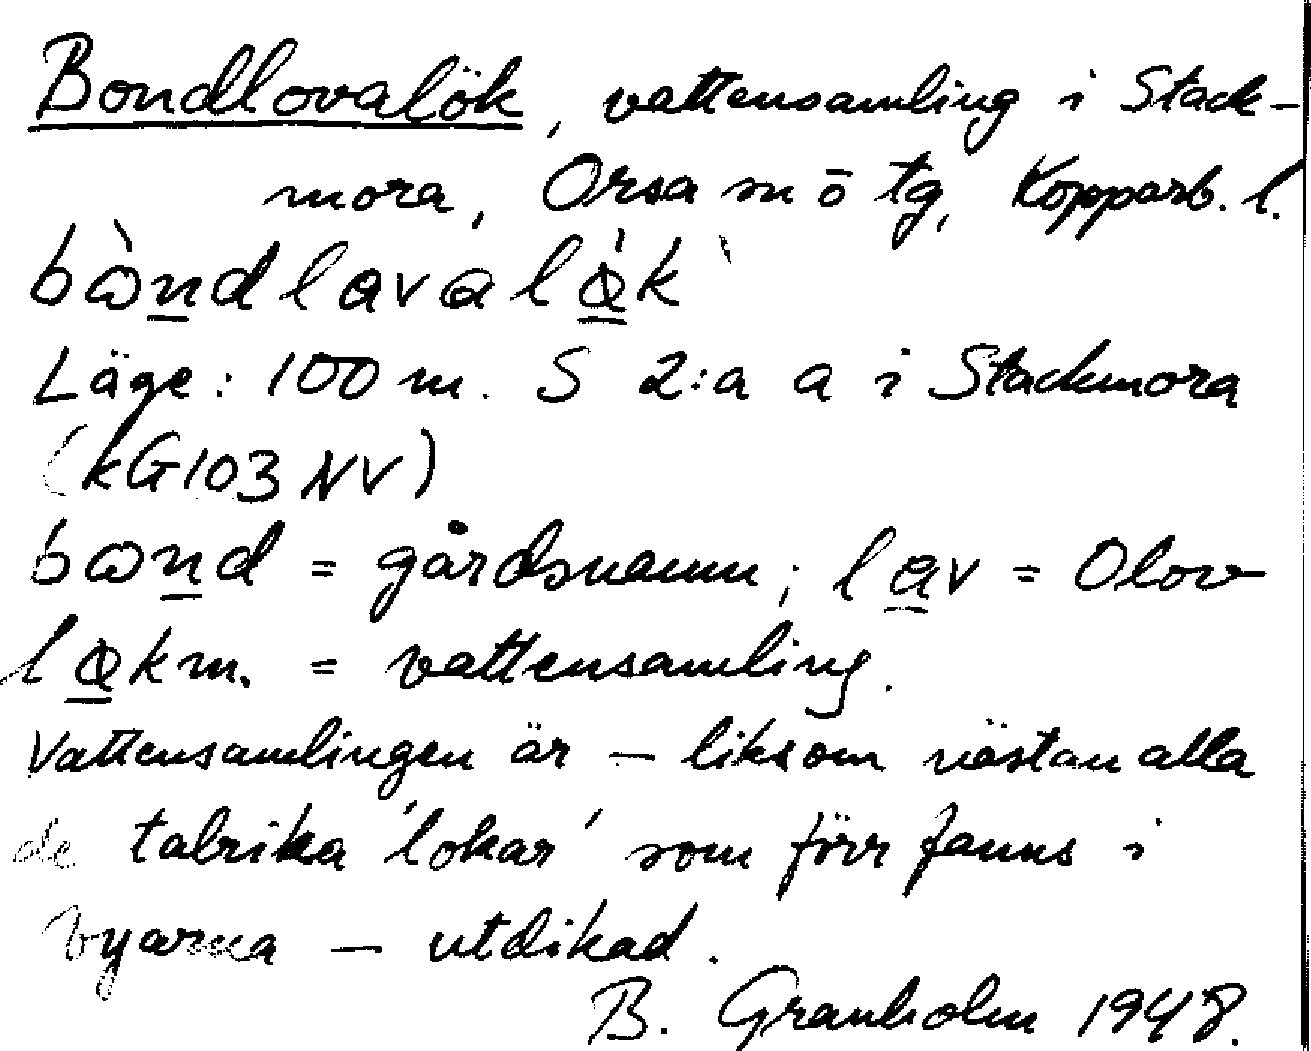 Bondlovalök, vattensamling i Stack-
mora, Orsa sn ō tg, Kopparb. l.
Läge: 100 m. S 2:a a i Stackmora
(kG103 NV)
= gårdsnamn; = Olov
m. = vattensamling.
Vattensamlingen är — liksom nästan alla
de talrika 'lokar' som förr fanns i
byarna — utdikad.
B. Granholm 1948.